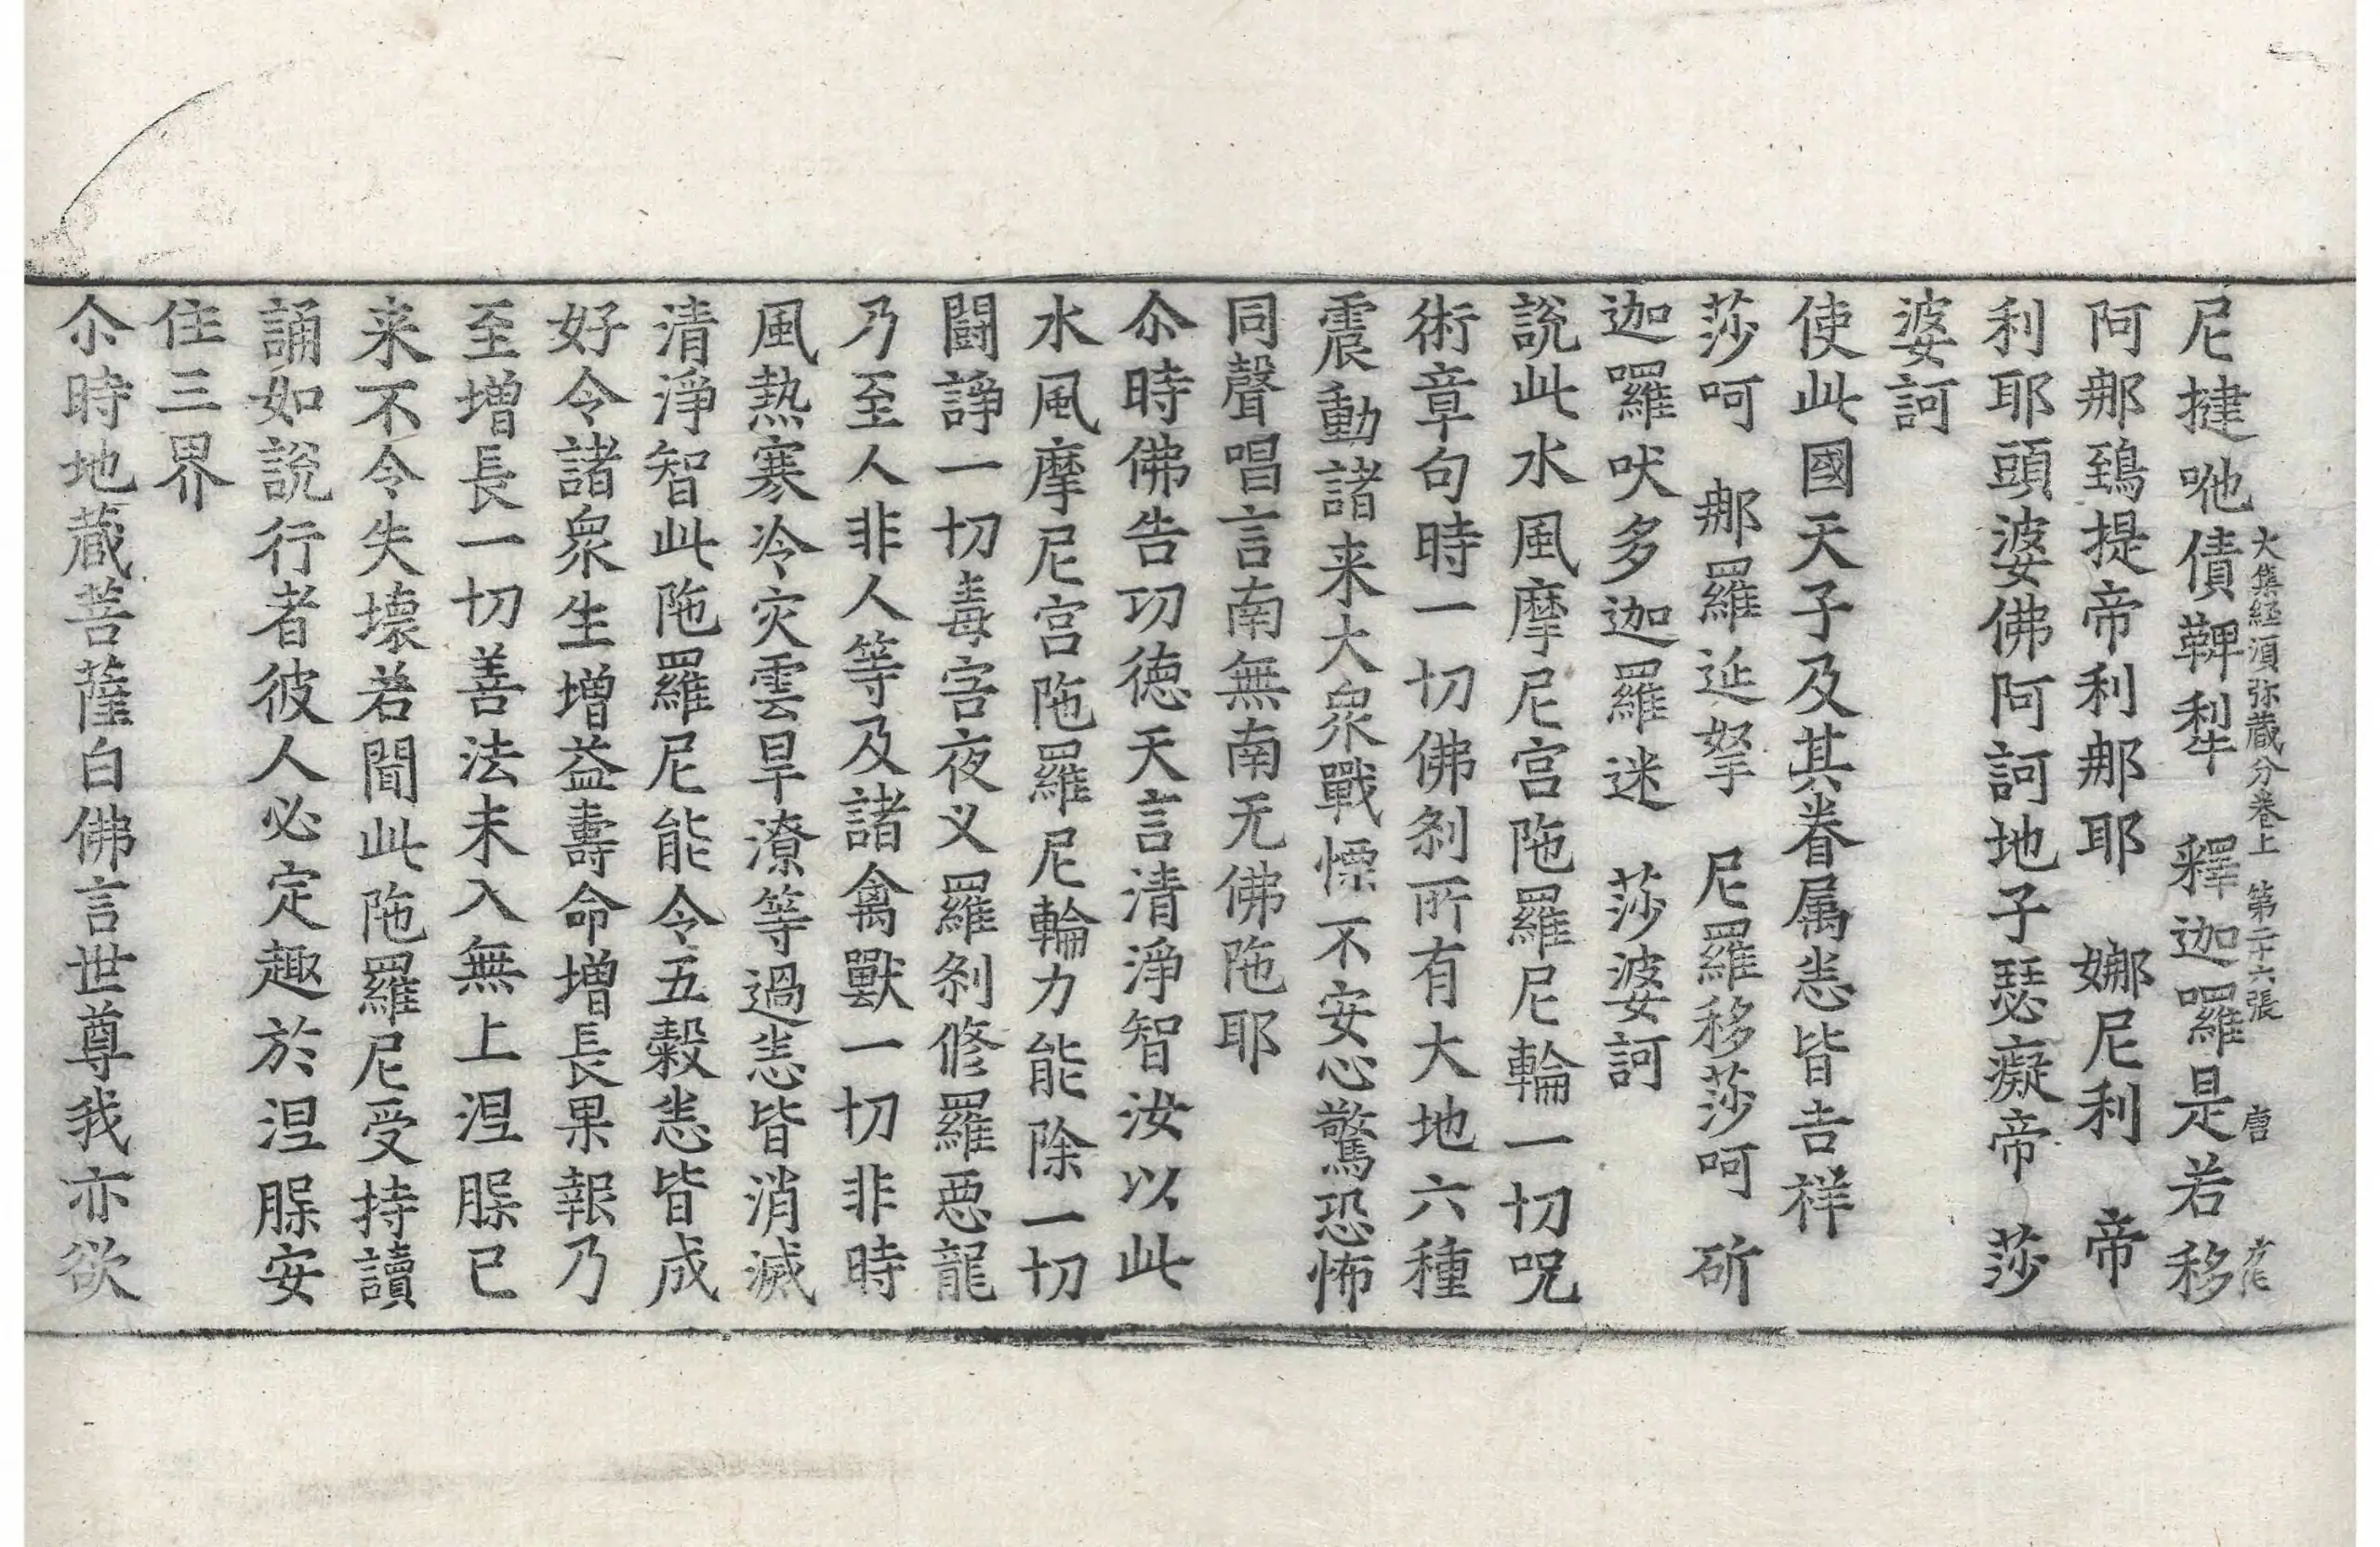 尼揵呬債鞞犁　釋迦囉是若移
大集經湏弥蔵分卷上　第二十六張　唐
阿那鵄提帝利那耶　娜尼利　帝
利耶頭婆佛阿訶地子瑟癡帝　莎
婆訶
使此國天子及其眷属悉皆吉祥
莎呵　那羅延拏　尼羅移莎呵　斫
迦囉吠多迦羅迷　莎婆訶
說此水風摩尼宫陁羅尼輪一切呪
術章句時一切佛剎所有大地六種
震動諸来大衆戰慄不安心驚恐怖
同聲唱言南無南无佛陁耶
尒時佛告功徳天言清淨智汝以此
水風摩尼宫陁羅尼輪力能除一切
闘諍一切毒害夜义羅剎修羅惡龍
乃至人非人等及諸禽獸一切非時
風熱寒冷灾雲旱潦等過悉皆消滅
清淨智此陁羅尼能令五穀悉皆成
好令諸衆生增益壽命增長果報乃
至增長一切善法未入無上涅槃已
来不令失壊若聞此陁羅尼受持讀
誦如說行者彼人必定趣於涅槃安
住三界
尒時地蔵菩薩白佛言世尊我亦欲